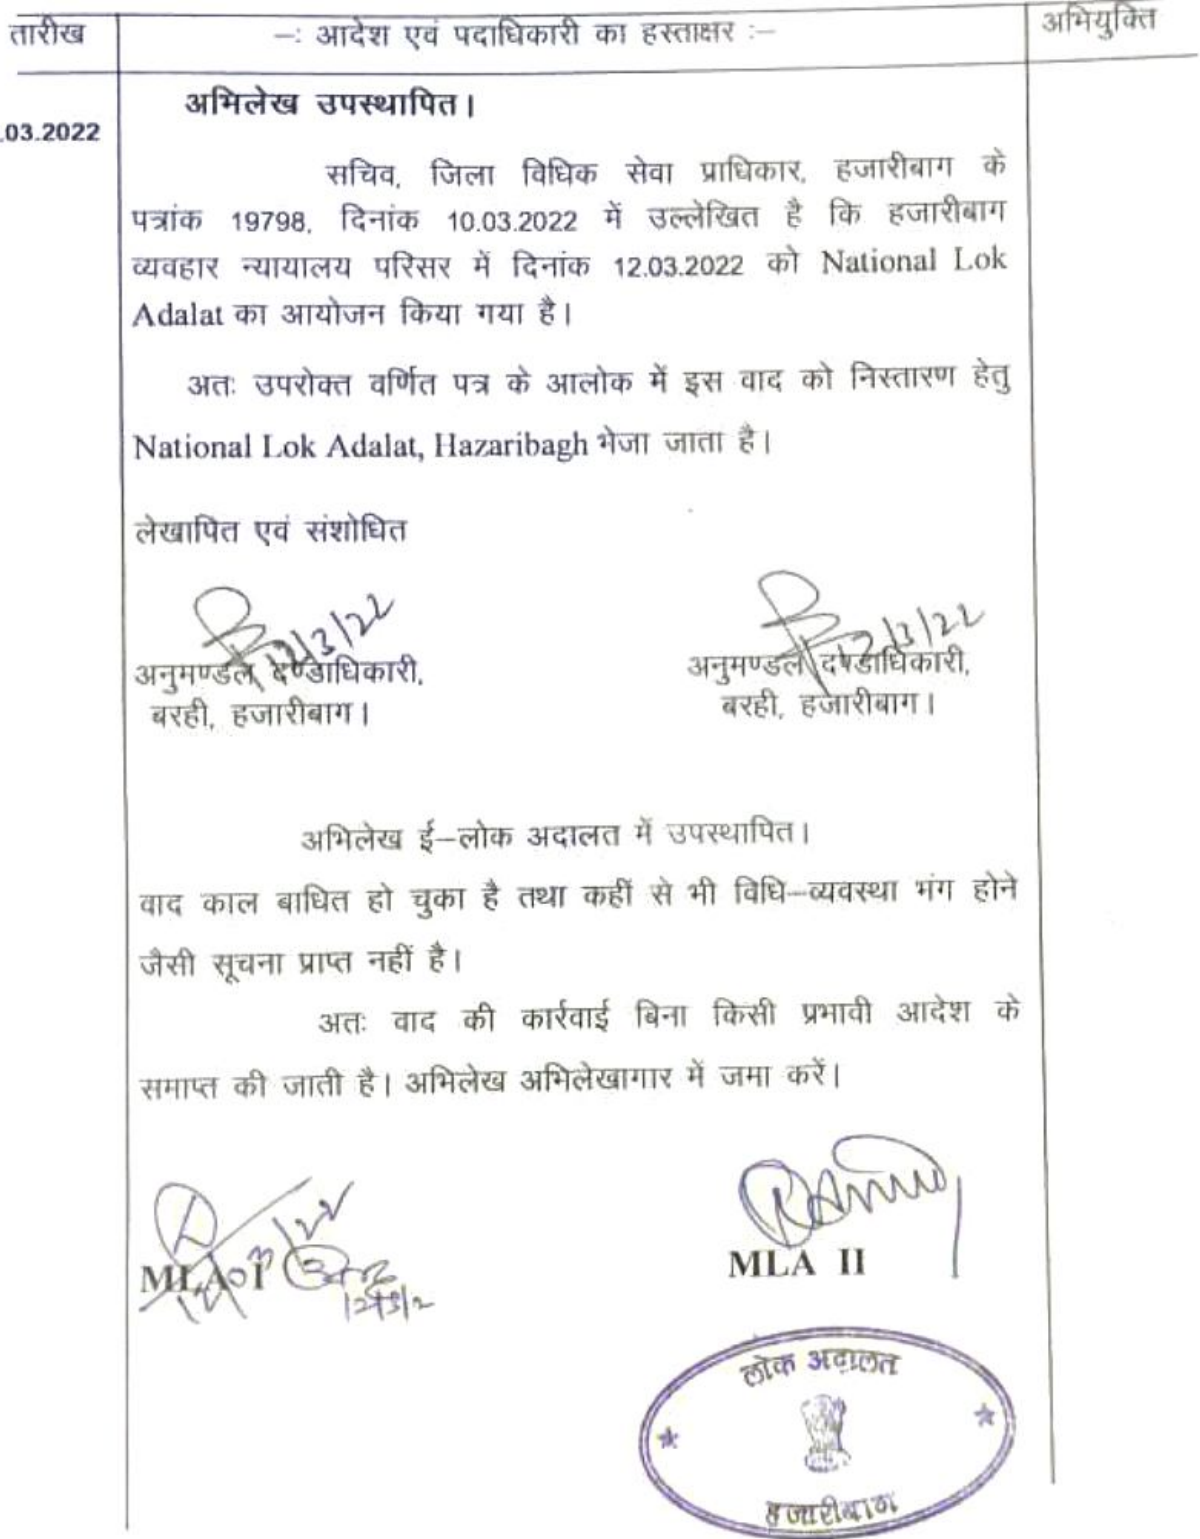 तारीख
–: आदेश एवं पदाधिकारी का हस्ताक्षर :–
अभियुक्ति
.03.2022
अभिलेख उपस्थापित।
सचिव, जिला विधिक सेवा प्राधिकार, हजारीबाग के
पत्रांक 19798, दिनांक 10.03.2022 में उल्लेखित है कि हजारीबाग
व्यवहार न्यायालय परिसर में दिनांक 12.03.2022 को National Lok
Adalat का आयोजन किया गया है।
अतः उपरोक्त वर्णित पत्र के आलोक में इस वाद को निस्तारण हेतु
National Lok Adalat, Hazaribagh भेजा जाता है।
लेखापित एवं संशोधित
12/3/22
12/3/22
अनुमण्डल दण्डाधिकारी,
अनुमण्डल दण्डाधिकारी,
बरही, हजारीबाग।
बरही, हजारीबाग।
अभिलेख ई–लोक अदालत में उपस्थापित।
वाद काल बाधित हो चुका है तथा कहीं से भी विधि–व्यवस्था भंग होने
जैसी सूचना प्राप्त नहीं है।
अतः वाद की कार्रवाई बिना किसी प्रभावी आदेश के
समाप्त की जाती है। अभिलेख अभिलेखागार में जमा करें।
MLA I
MLA II
लोक अदालत
हजारीबाग